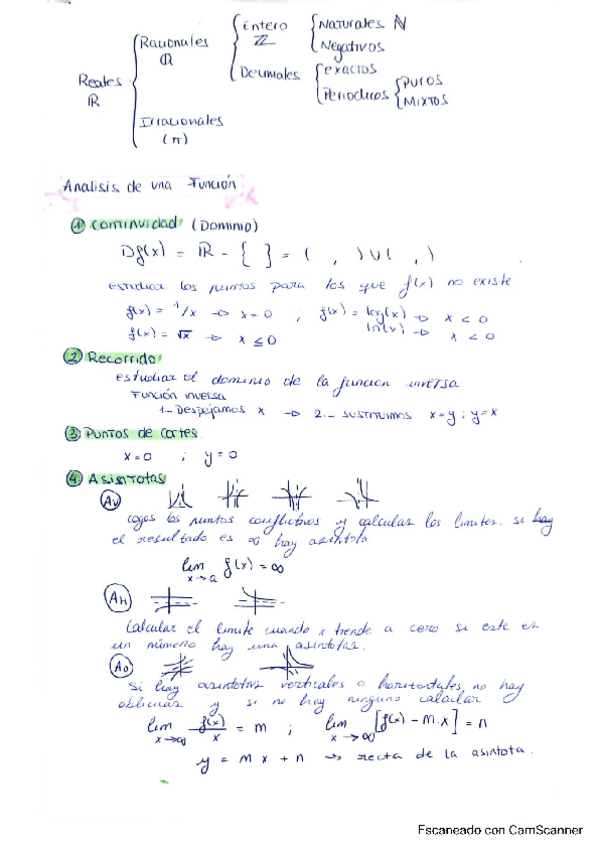 Reales
ℝ
Racionales
ℚ
Irracionales
(π)
Entero
ℤ
Decimales
Naturales ℕ
Negativos
exactos
Periodicos
Puros
Mixtos
Analisis de una Función
1 Continuidad (Dominio)
Df(x) = ℝ - { } = ( , ) ∪ ( , )
estudiar los puntos para los que f(x) no existe
f(x) = 1/x → x = 0 ; f(x) = log(x) → x < 0
ln(x) → x < 0
f(x) = √x → x ≤ 0
2 Recorrido
estudiar el dominio de la funcion inversa
Función inversa
1.- Despejamos x → 2.- sustituimos x=y ; y=x
3 Puntos de cortes
x=0 ; y=0
4 Asintotas
AV
coges los puntos conflictivos y calcular los limites. si hay
el resultado es ∞ hay asintota
lim x→a f(x) = ∞
AH
Calcular el limite cuando x tiende a cero si este es
un número hay una asintotas.
AO
Si hay asintotas verticales o horizontales no hay
oblicuas y si no hay ninguno calcular
lim x→∞ f(x)/x = m ; lim x→∞ [f(x) - m·x] = n
y = mx + n → recta de la asintota.
Escaneado con CamScanner